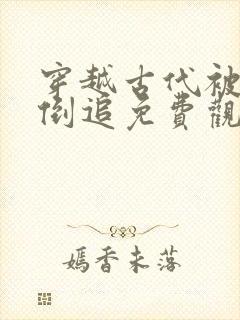 穿越古代被
倒追免費觀
嫣香未落